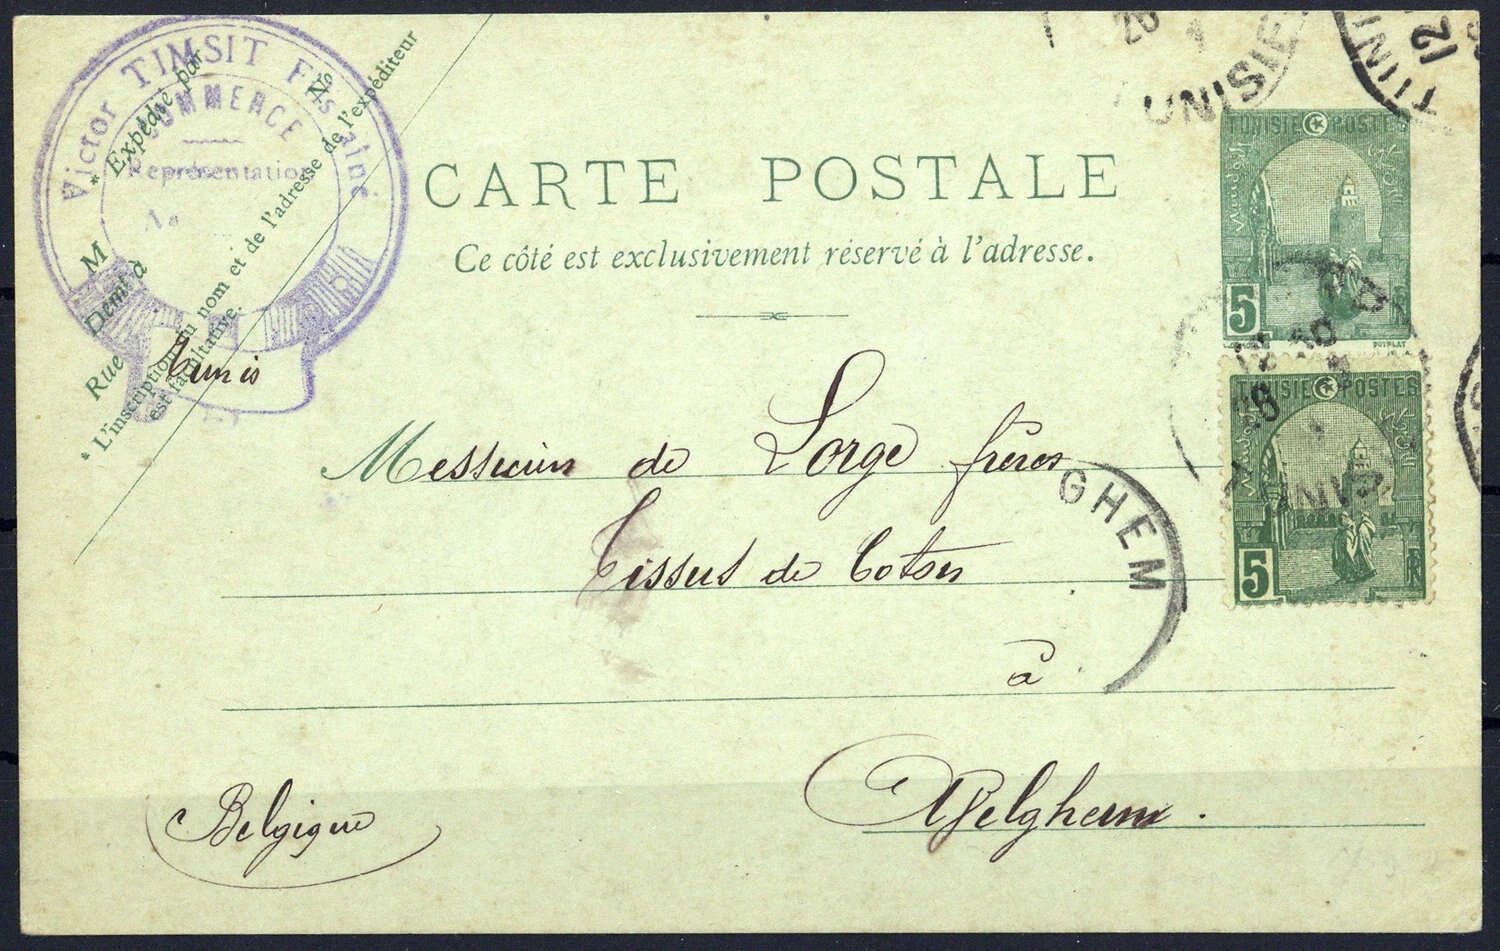 Victor TIMSIT Fils ainé
COMMERCE
Représentation
* Expédié par
M
No
Rue
Demt à
* L'inscription du nom et de l'adresse de l'expéditeur
est facultative.
Tunis
CARTE POSTALE
Ce côté est exclusivement réservé à l'adresse.
26
TUNISIE
12
TUNI
TUNISIE POSTES
5
TUNISIE POSTES
5
Messieurs de Lorge frères
Tissus de Coton
GHEM
à
Afelghem.
Belgique